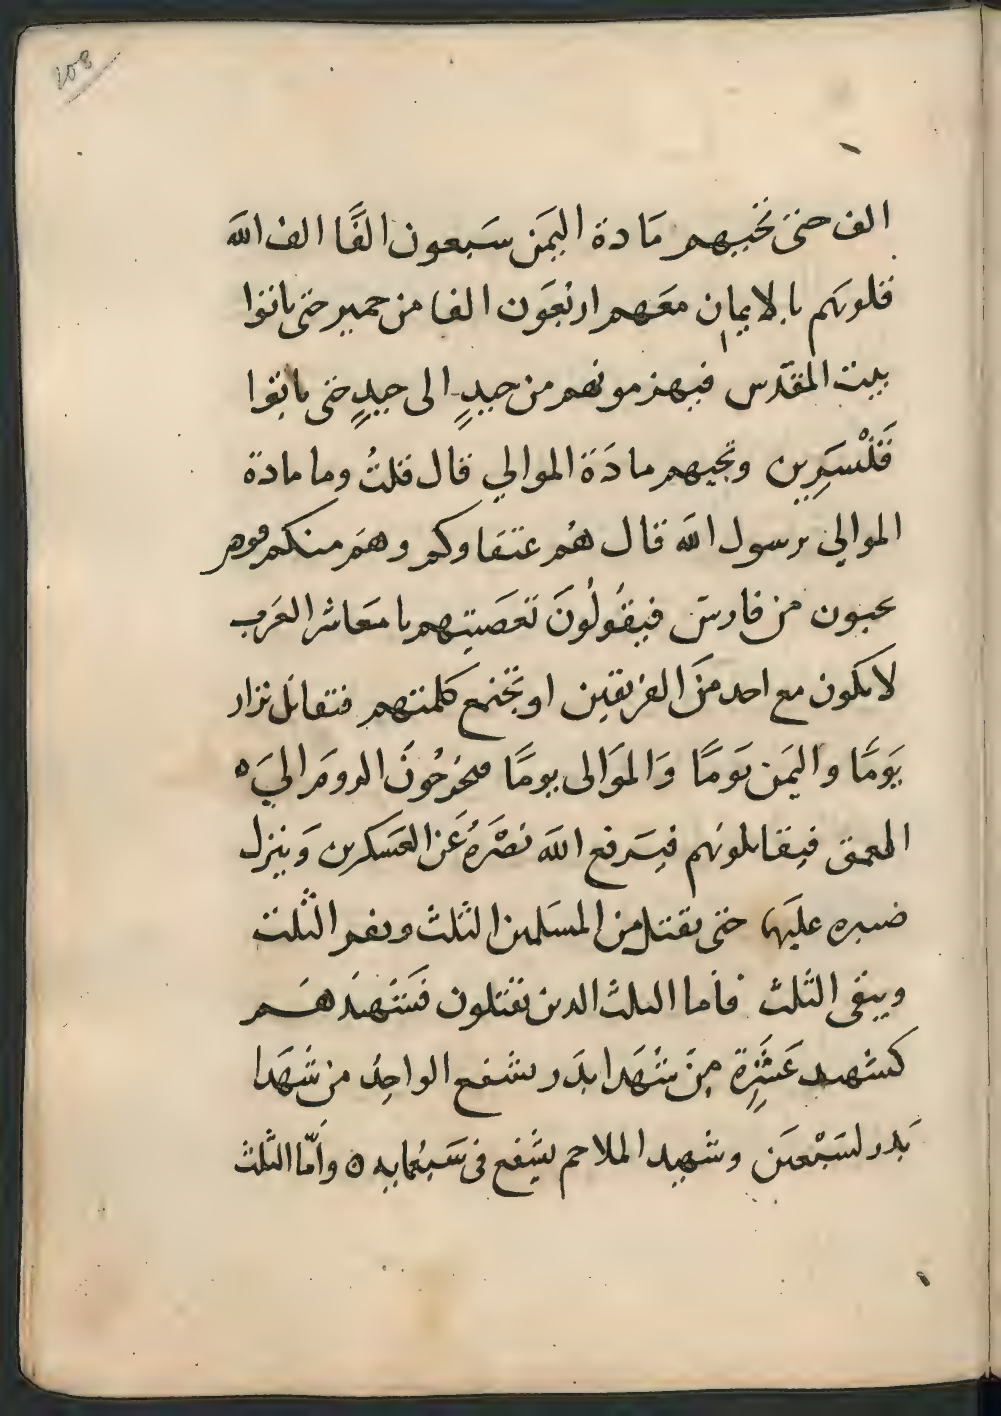 108
الف حتى تجيهم مَادة اليمَن سَبعون الفًا الف الله
قلوبَهم بالايمان معَهم اربعَون الفا من حمير حتى ياتوا
بيت المقدّس فيهزمونهم من جيدٍ الى جيدٍ حتى ياتوا
قَنْسَرِين وتجيهم مادَة الموالي قال قلتُ وما مادة
الموالي يرسول الله قال هُم عتقاوكم وهمَ منكم قوم
يجيون من فارسَ فيقُولُونَ تعَصَّبتهم يا معَاشر العَرب
لا نكون مع احد منَ الفريقين او تجتمع كلمتهم فتقاتل نزار
يَومًا واليمَن يَومًا وَالموَالى يومًا فيخرجُونَ الرومَ الى ٥
العمق فيقاتلونهم فيَرفع الله نصْرَهُ عَن العَسكرين وَينزل
صبره عليَهما حتى يقتل من المسَلمين الثلث ويفر الثلث
ويبقى الثلث فاما الثلث الدين يقتلون فشَهيدَهم
كشهيد عَشَرَةٍ مِنَ شهَدا بدَر يشفع الواحِدُ من شهَدا
بَدر لسَبْعين وشهيد الملاحم يشَفع فى سَبعُمايه ٥ وَاَمّا الثلث